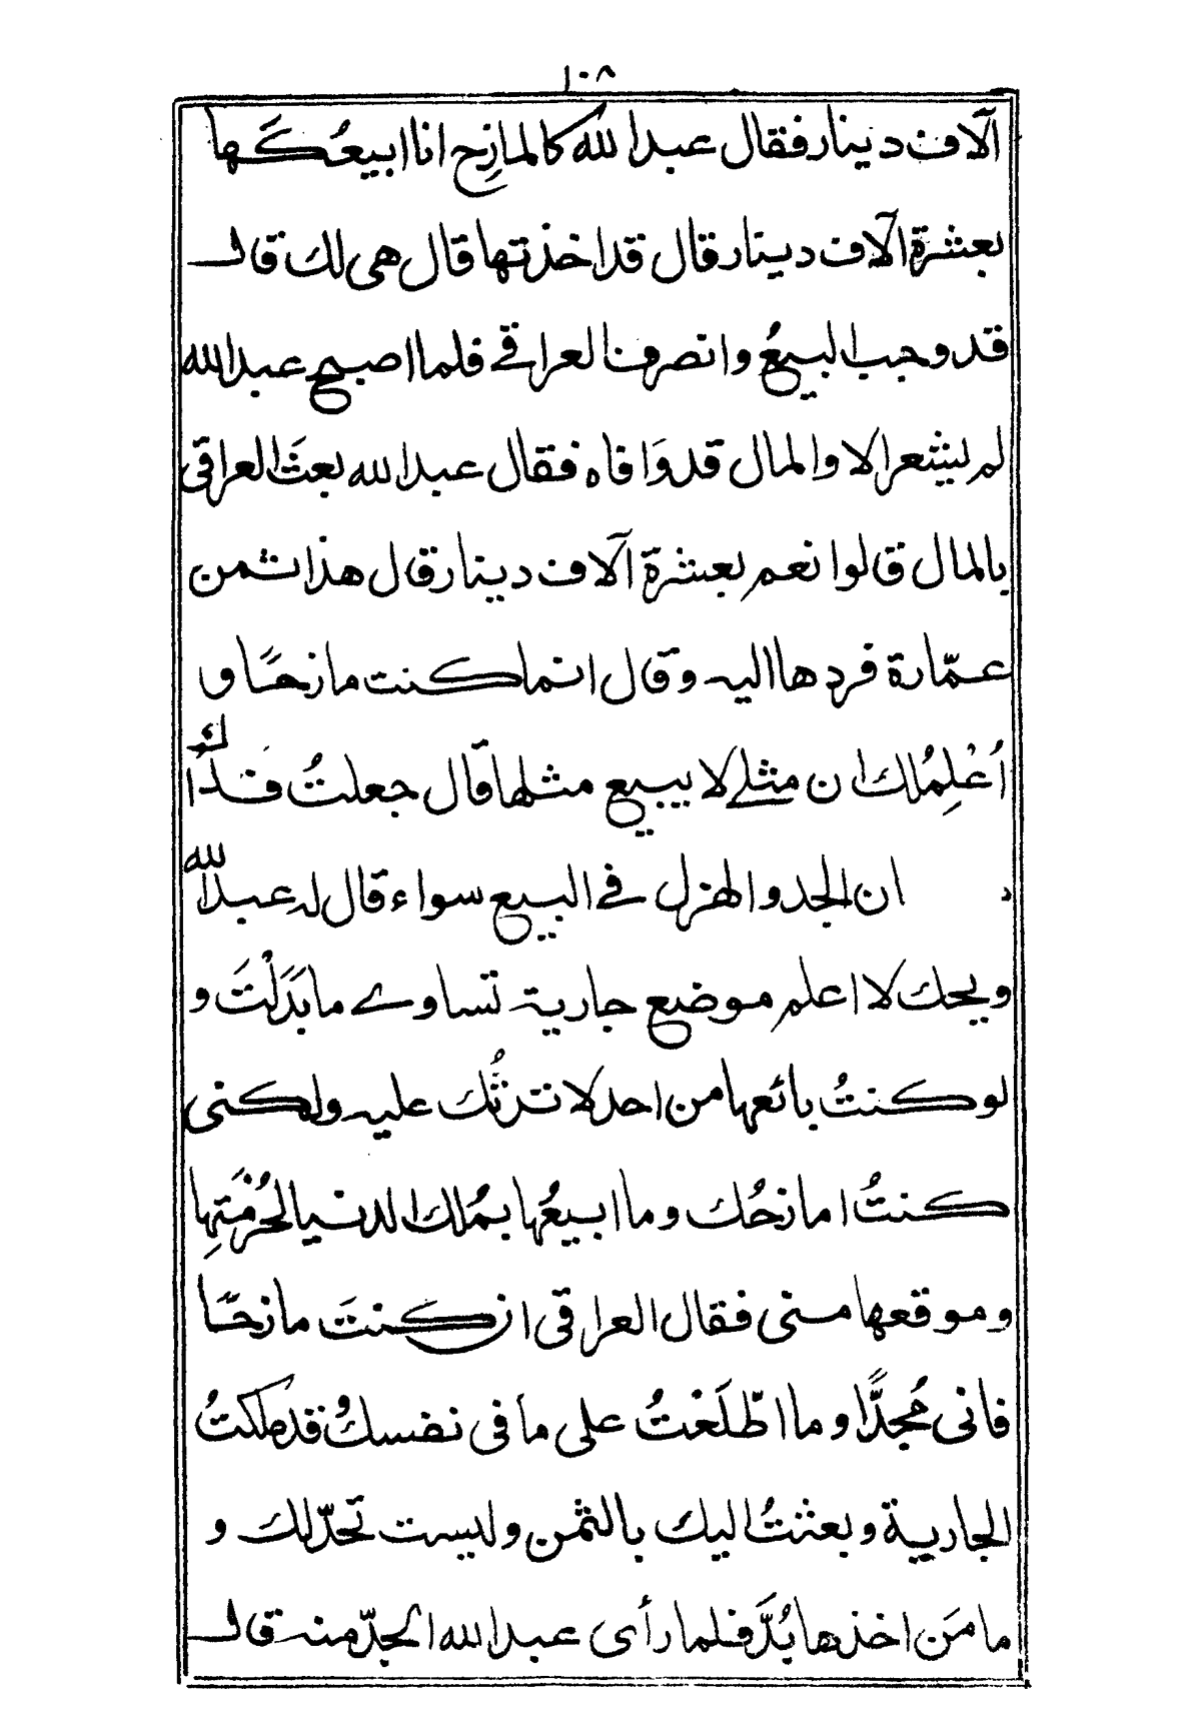 ١٠٨
آلاف دينار فقال عبدالله كالمازِح انا ابيعُكَها
بعشرة آلاف دينار قال قد اخذتها قال هى لك قال
قد وجب البيعُ وانصرف العراقي فلما اصبح عبدالله
لم يشعر الا والمال قد وَافاه فقال عبدالله بعثَ العراقى
بالمال قالوا نعم بعشرة آلاف دينار قال هذا ثمن
عمّارة فردها اليه وقال انما كنت مازحًا و
اُعْلِمُك ان مثلي لا يبيع مثلها قال جعلتُ فداُك
ان الجد والهزل في البيع سواء قال له عبدالله
ويحك لا اعلم موضع جارية تساوي ما بَذَلْتَ و
لو كنتُ بائعها من احد لاثرتُك عليه ولكنى
كنتُ امازحُك وما ابيعُها بمُلك الدنيا لحُرْمَتِها
وموقعها منى فقال العراقى ان كنتَ مازحًا
فانى مُجِدًّا وما اطّلَعْتُ على ما فى نفسك وُقد ملكتُ
الجارية وبعثتُ اليك بالثمن وليست تحلّ لك و
ما مَن اخذها بُدَّ فلما رأى عبدالله الجدّ منه قال